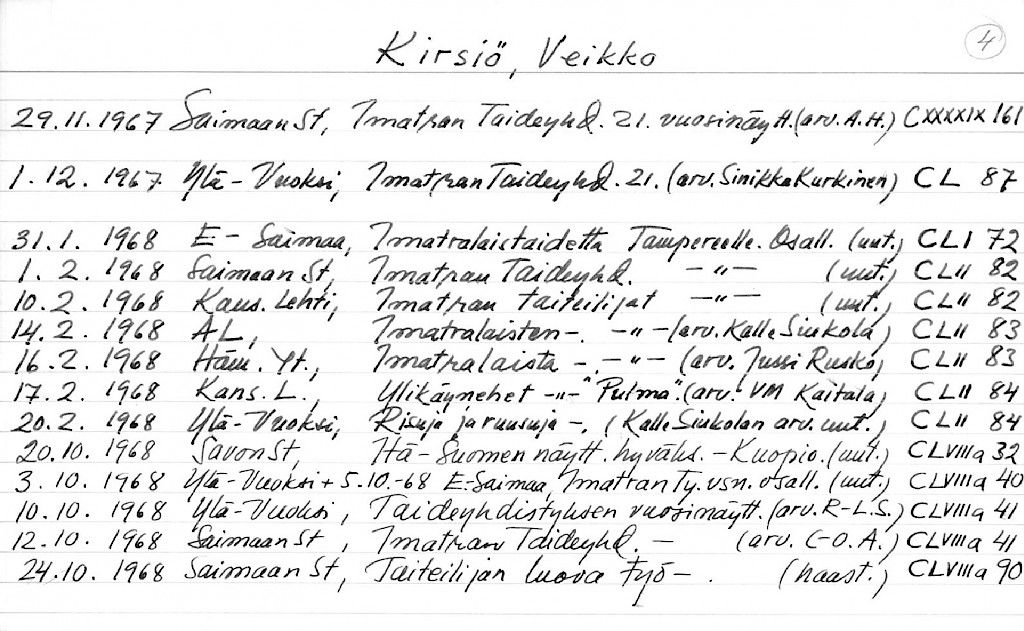 Kirsiö, Veikko 4
29.11.1967 Saimaan St, Imatran Taideyhd. 21. vuosinäytt. (arv. A.H.) CXXXXIX 161
1.12.1967 Ylä-Vuoksi, Imatran Taideyhd. 21. (arv. Sinikka Kurkinen) CL 87
31.1. 1968 E-Saimaa, Imatralaistaidetta Tampereelle. Osall. (uut.) CLI 72
1.2. 1968 Saimaan St, Imatran Taideyhd. -"- (uut.) CLII 82
10.2. 1968 Kans. Lehti, Imatran taiteilijat -"- (uut.) CLII 82
14.2. 1968 AL, Imatralaisten -. -"- (arv. Kalle Siukola) CLII 83
16.2. 1968 Häm. Yt., Imatralaista -. -"- (arv. Jussi Rusko) CLII 83
17.2. 1968 Kans. L., Ylikäynehet -"- "Pulma". (arv. VM Kaitala) CLII 84
20.2. 1968 Ylä-Vuoksi, Risuja ja ruusuja -. (Kalle Siukolan arv. uut.) CLII 84
20.10. 1968 Savon St, Itä-Suomen näytt. hyväks. - Kuopio. (uut.) CLVIIIa 32
3.10. 1968 Ylä-Vuoksi + 5.10.-68 E-Saimaa, Imatran Ty. vsn. osall. (uut.) CLVIIIa 40
10.10. 1968 Ylä-Vuoksi, Taideyhdistyksen vuosinäytt. (arv. R-L.S.) CLVIIIa 41
12.10. 1968 Saimaan St, Imatran Taideyhd. - (arv. C-O.A.) CLVIIIa 41
24.10. 1968 Saimaan St, Taiteilijan luova työ -. (haast.) CLVIIIa 90